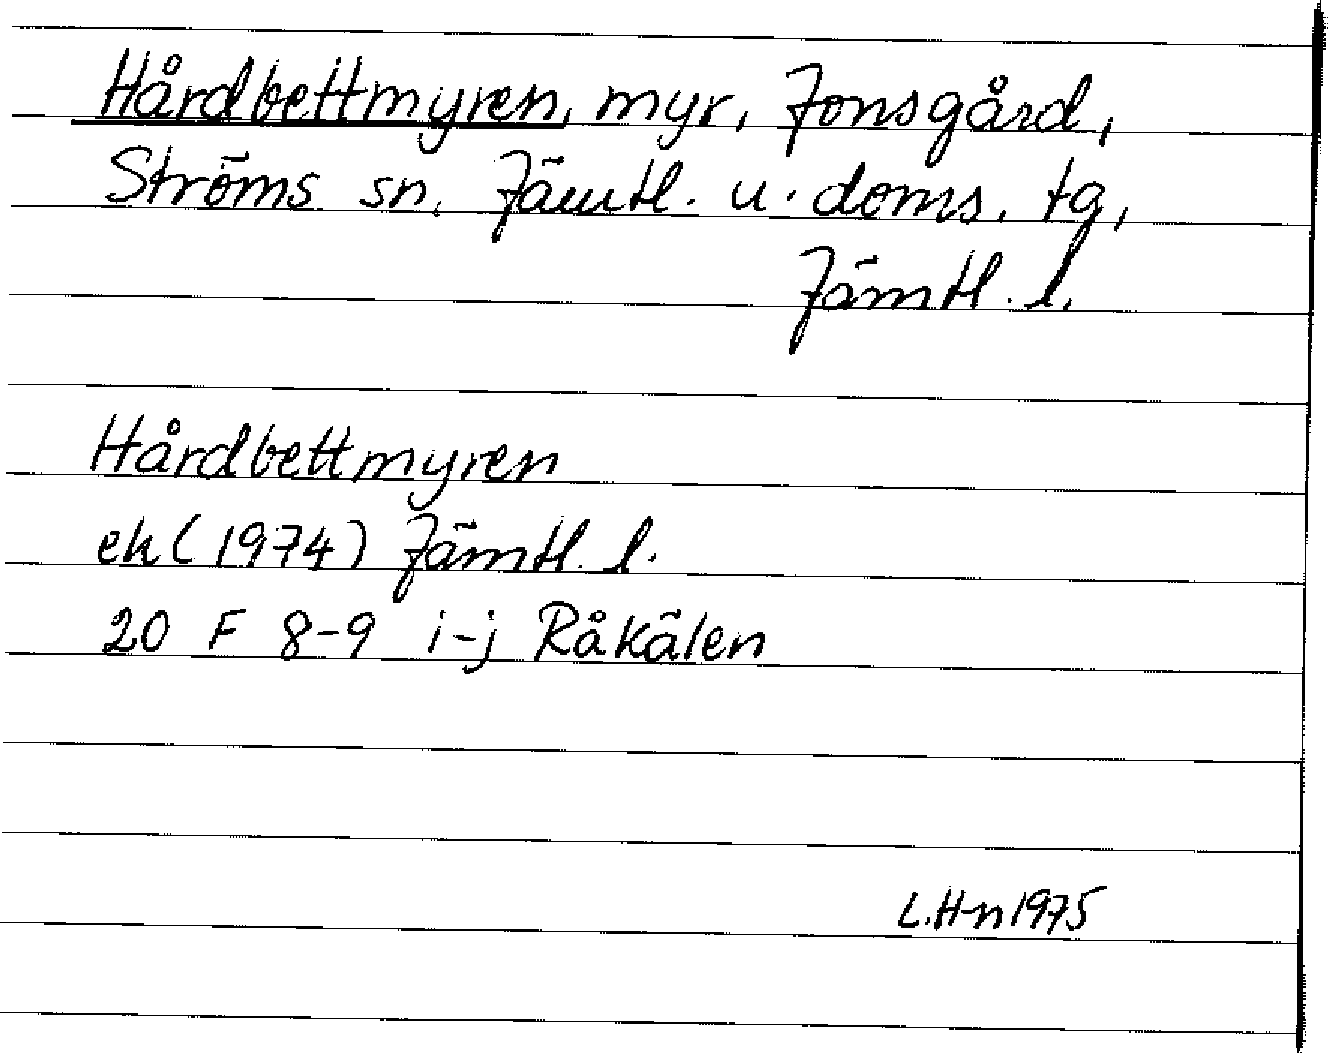 Hårdbettmyren, myr, Jonsgård,
Ströms sn. Jämtl. u. doms. tg,
Jämtl. l.
Hårdbettmyren
ek (1974) Jämtl. l.
20 F 8-9 i-j Råkälen
L.H-n 1975